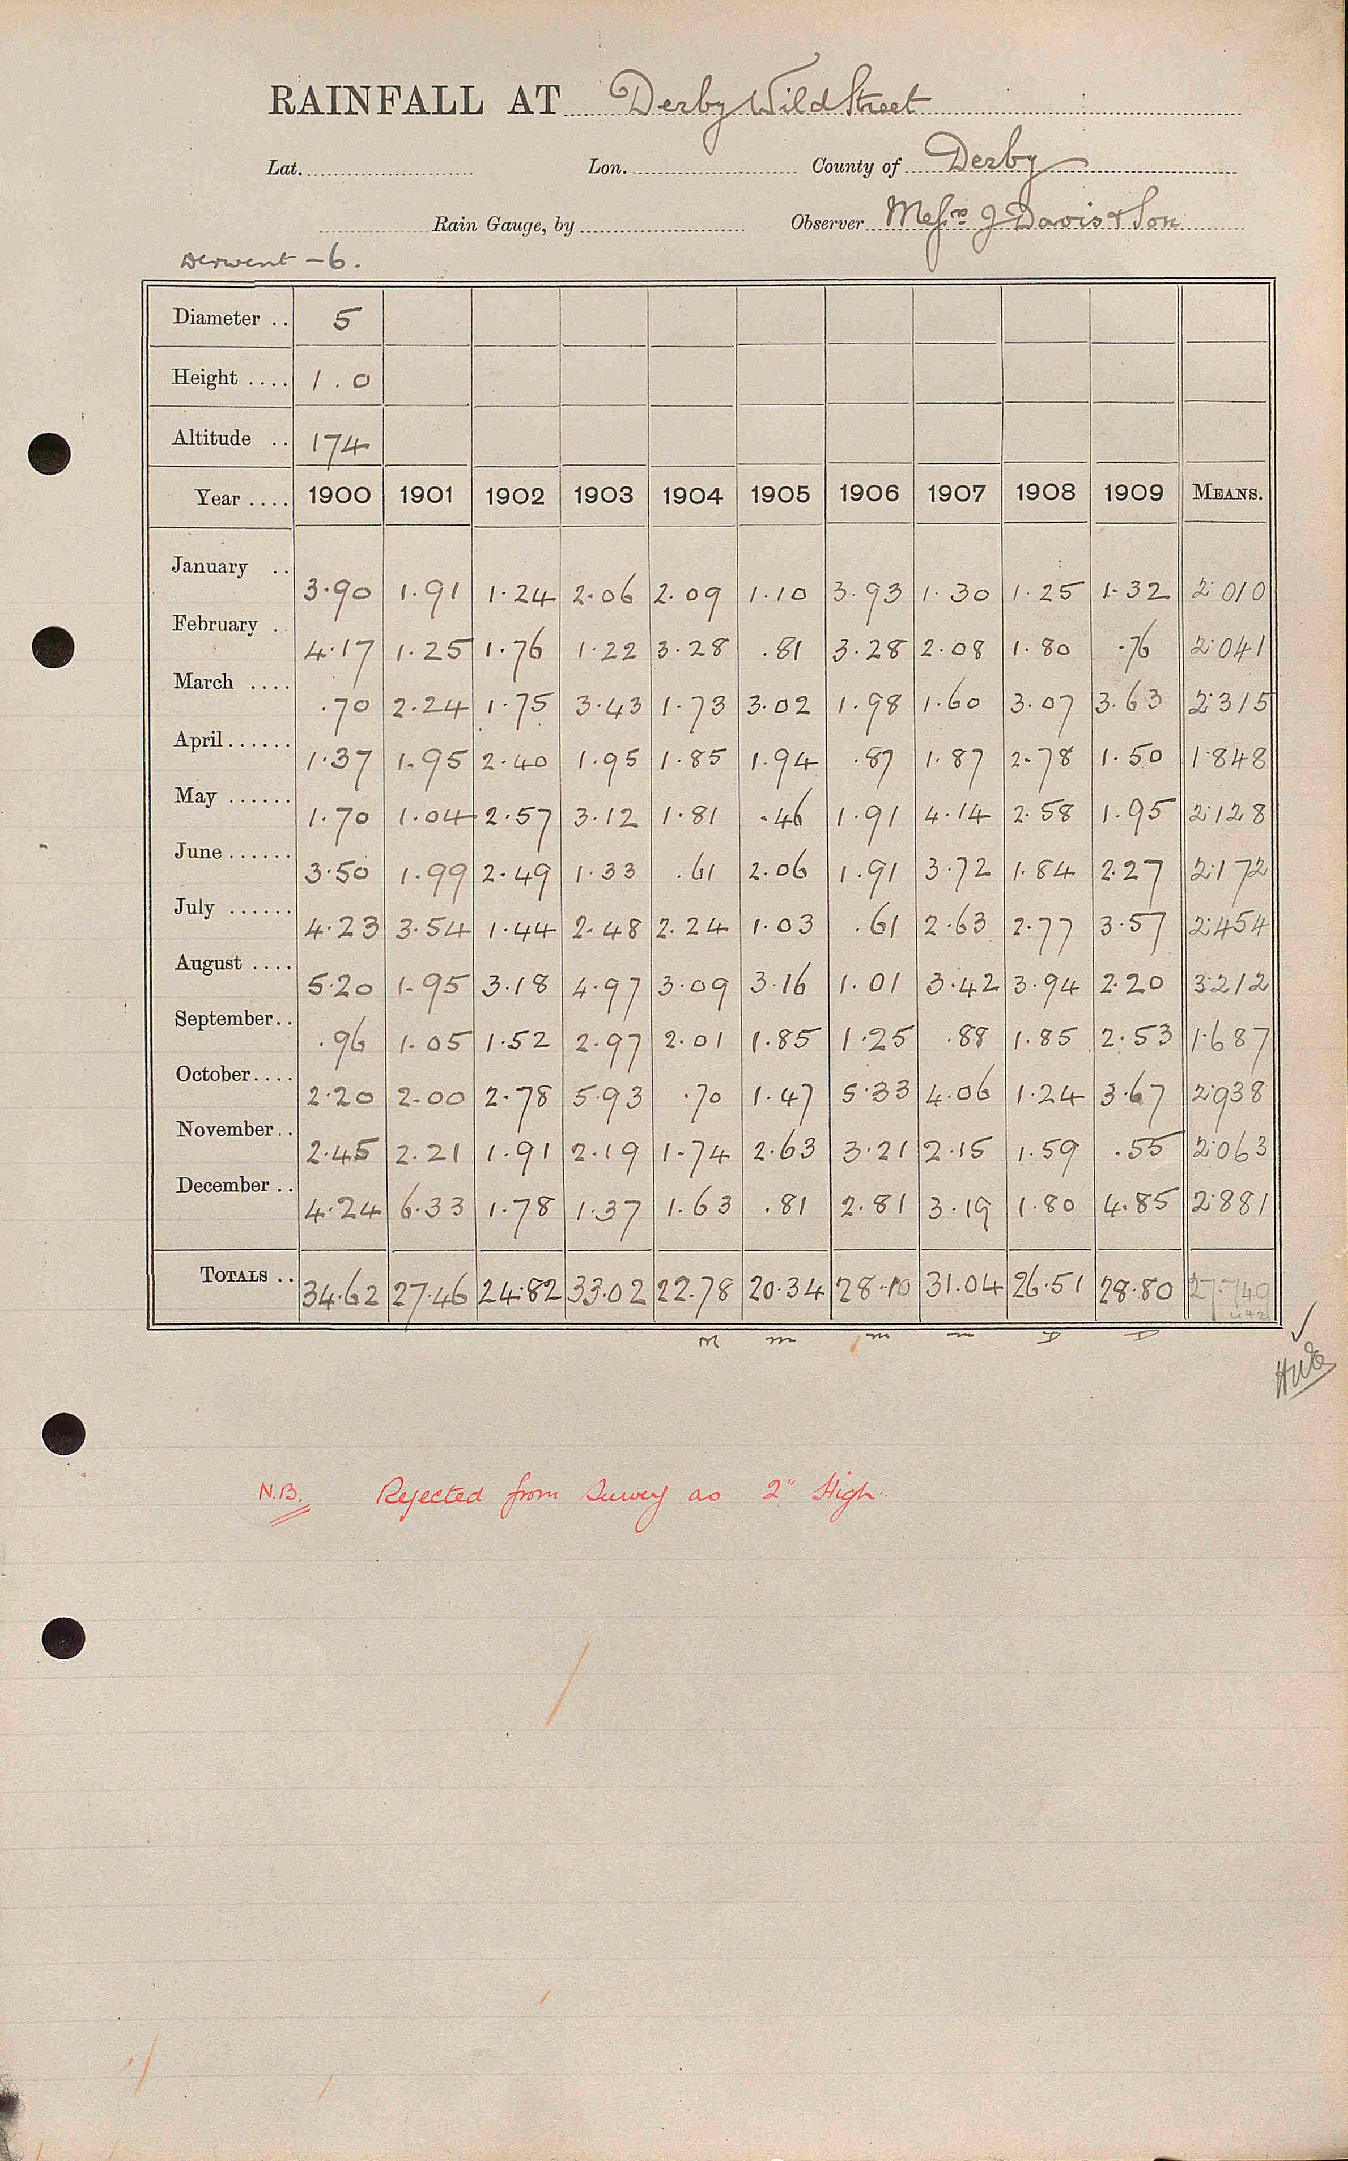 RAINFALL AT Derby Wild Street
Lat. Lon. County of Derby
Rain Gauge, by Observer Messrs J Davis & Son
Derwent - 6.
Diameter .. 5
Height .... 1.0
Altitude .. 174
Year .... 1900 1901 1902 1903 1904 1905 1906 1907 1908 1909 MEANS.
January .. 3.90 1.91 1.24 2.06 2.09 1.10 3.93 1.30 1.25 1.32 2.010
February . 4.17 1.25 1.76 1.22 3.28 .81 3.28 2.08 1.80 .76 2.041
March .... .70 2.24 1.75 3.43 1.73 3.02 1.98 1.60 3.07 3.63 2.315
April...... 1.37 1.95 2.40 1.95 1.85 1.94 .87 1.87 2.78 1.50 1.848
May ...... 1.70 1.04 2.57 3.12 1.81 .46 1.91 4.14 2.58 1.95 2.128
June...... 3.50 1.99 2.49 1.33 .61 2.06 1.91 3.72 1.84 2.27 2.172
July ...... 4.23 3.54 1.44 2.48 2.24 1.03 .61 2.63 2.77 3.57 2.454
August .... 5.20 1.95 3.18 4.97 3.09 3.16 1.01 3.42 3.94 2.20 3.212
September.. .96 1.05 1.52 2.97 2.01 1.85 1.25 .88 1.85 2.53 1.687
October.... 2.20 2.00 2.78 5.93 .70 1.47 5.33 4.06 1.24 3.67 2.938
November.. 2.45 2.21 1.91 2.19 1.74 2.63 3.21 2.15 1.59 .55 2.063
December .. 4.24 6.33 1.78 1.37 1.63 .81 2.81 3.19 1.80 4.85 2.881
TOTALS .. 34.62 27.46 24.82 33.02 22.78 20.34 28.10 31.04 26.51 28.80 27.749
M m m m D D
N.B. Rejected from Survey as 2" High.